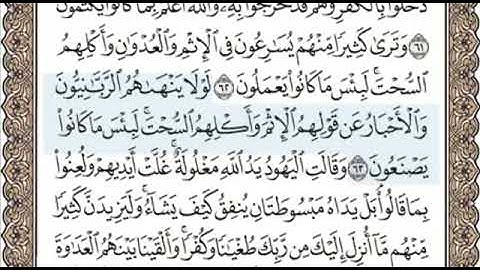 دَخَلُوا۟ بِٱلْكُفْرِ وَهُمْ قَدْ خَرَجُوا۟ بِهِۦ وَٱللَّهُ أَعْلَمُ بِمَا كَانُوا۟ يَكْتُمُونَ
٦١ وَتَرَىٰ كَثِيرًا مِّنْهُمْ يُسَٰرِعُونَ فِى ٱلْإِثْمِ وَٱلْعُدْوَٰنِ وَأَكْلِهِمُ
ٱلسُّحْتَ ۚ لَبِئْسَ مَا كَانُوا۟ يَعْمَلُونَ ٦٢ لَوْلَا يَنْهَىٰهُمُ ٱلرَّبَّٰنِيُّونَ
وَٱلْأَحْبَارُ عَن قَوْلِهِمُ ٱلْإِثْمَ وَأَكْلِهِمُ ٱلسُّحْتَ ۚ لَبِئْسَ مَا كَانُوا۟
يَصْنَعُونَ ٦٣ وَقَالَتِ ٱلْيَهُودُ يَدُ ٱللَّهِ مَغْلُولَةٌ ۚ غُلَّتْ أَيْدِيهِمْ وَلُعِنُوا۟
بِمَا قَالُوا۟ ۘ بَلْ يَدَاهُ مَبْسُوطَتَانِ يُنفِقُ كَيْفَ يَشَآءُ ۚ وَلَيَزِيدَنَّ كَثِيرًا
مِّنْهُم مَّآ أُنزِلَ إِلَيْكَ مِن رَّبِّكَ طُغْيَٰنًا وَكُفْرًا ۚ وَأَلْقَيْنَا بَيْنَهُمُ ٱلْعَدَٰوَةَ